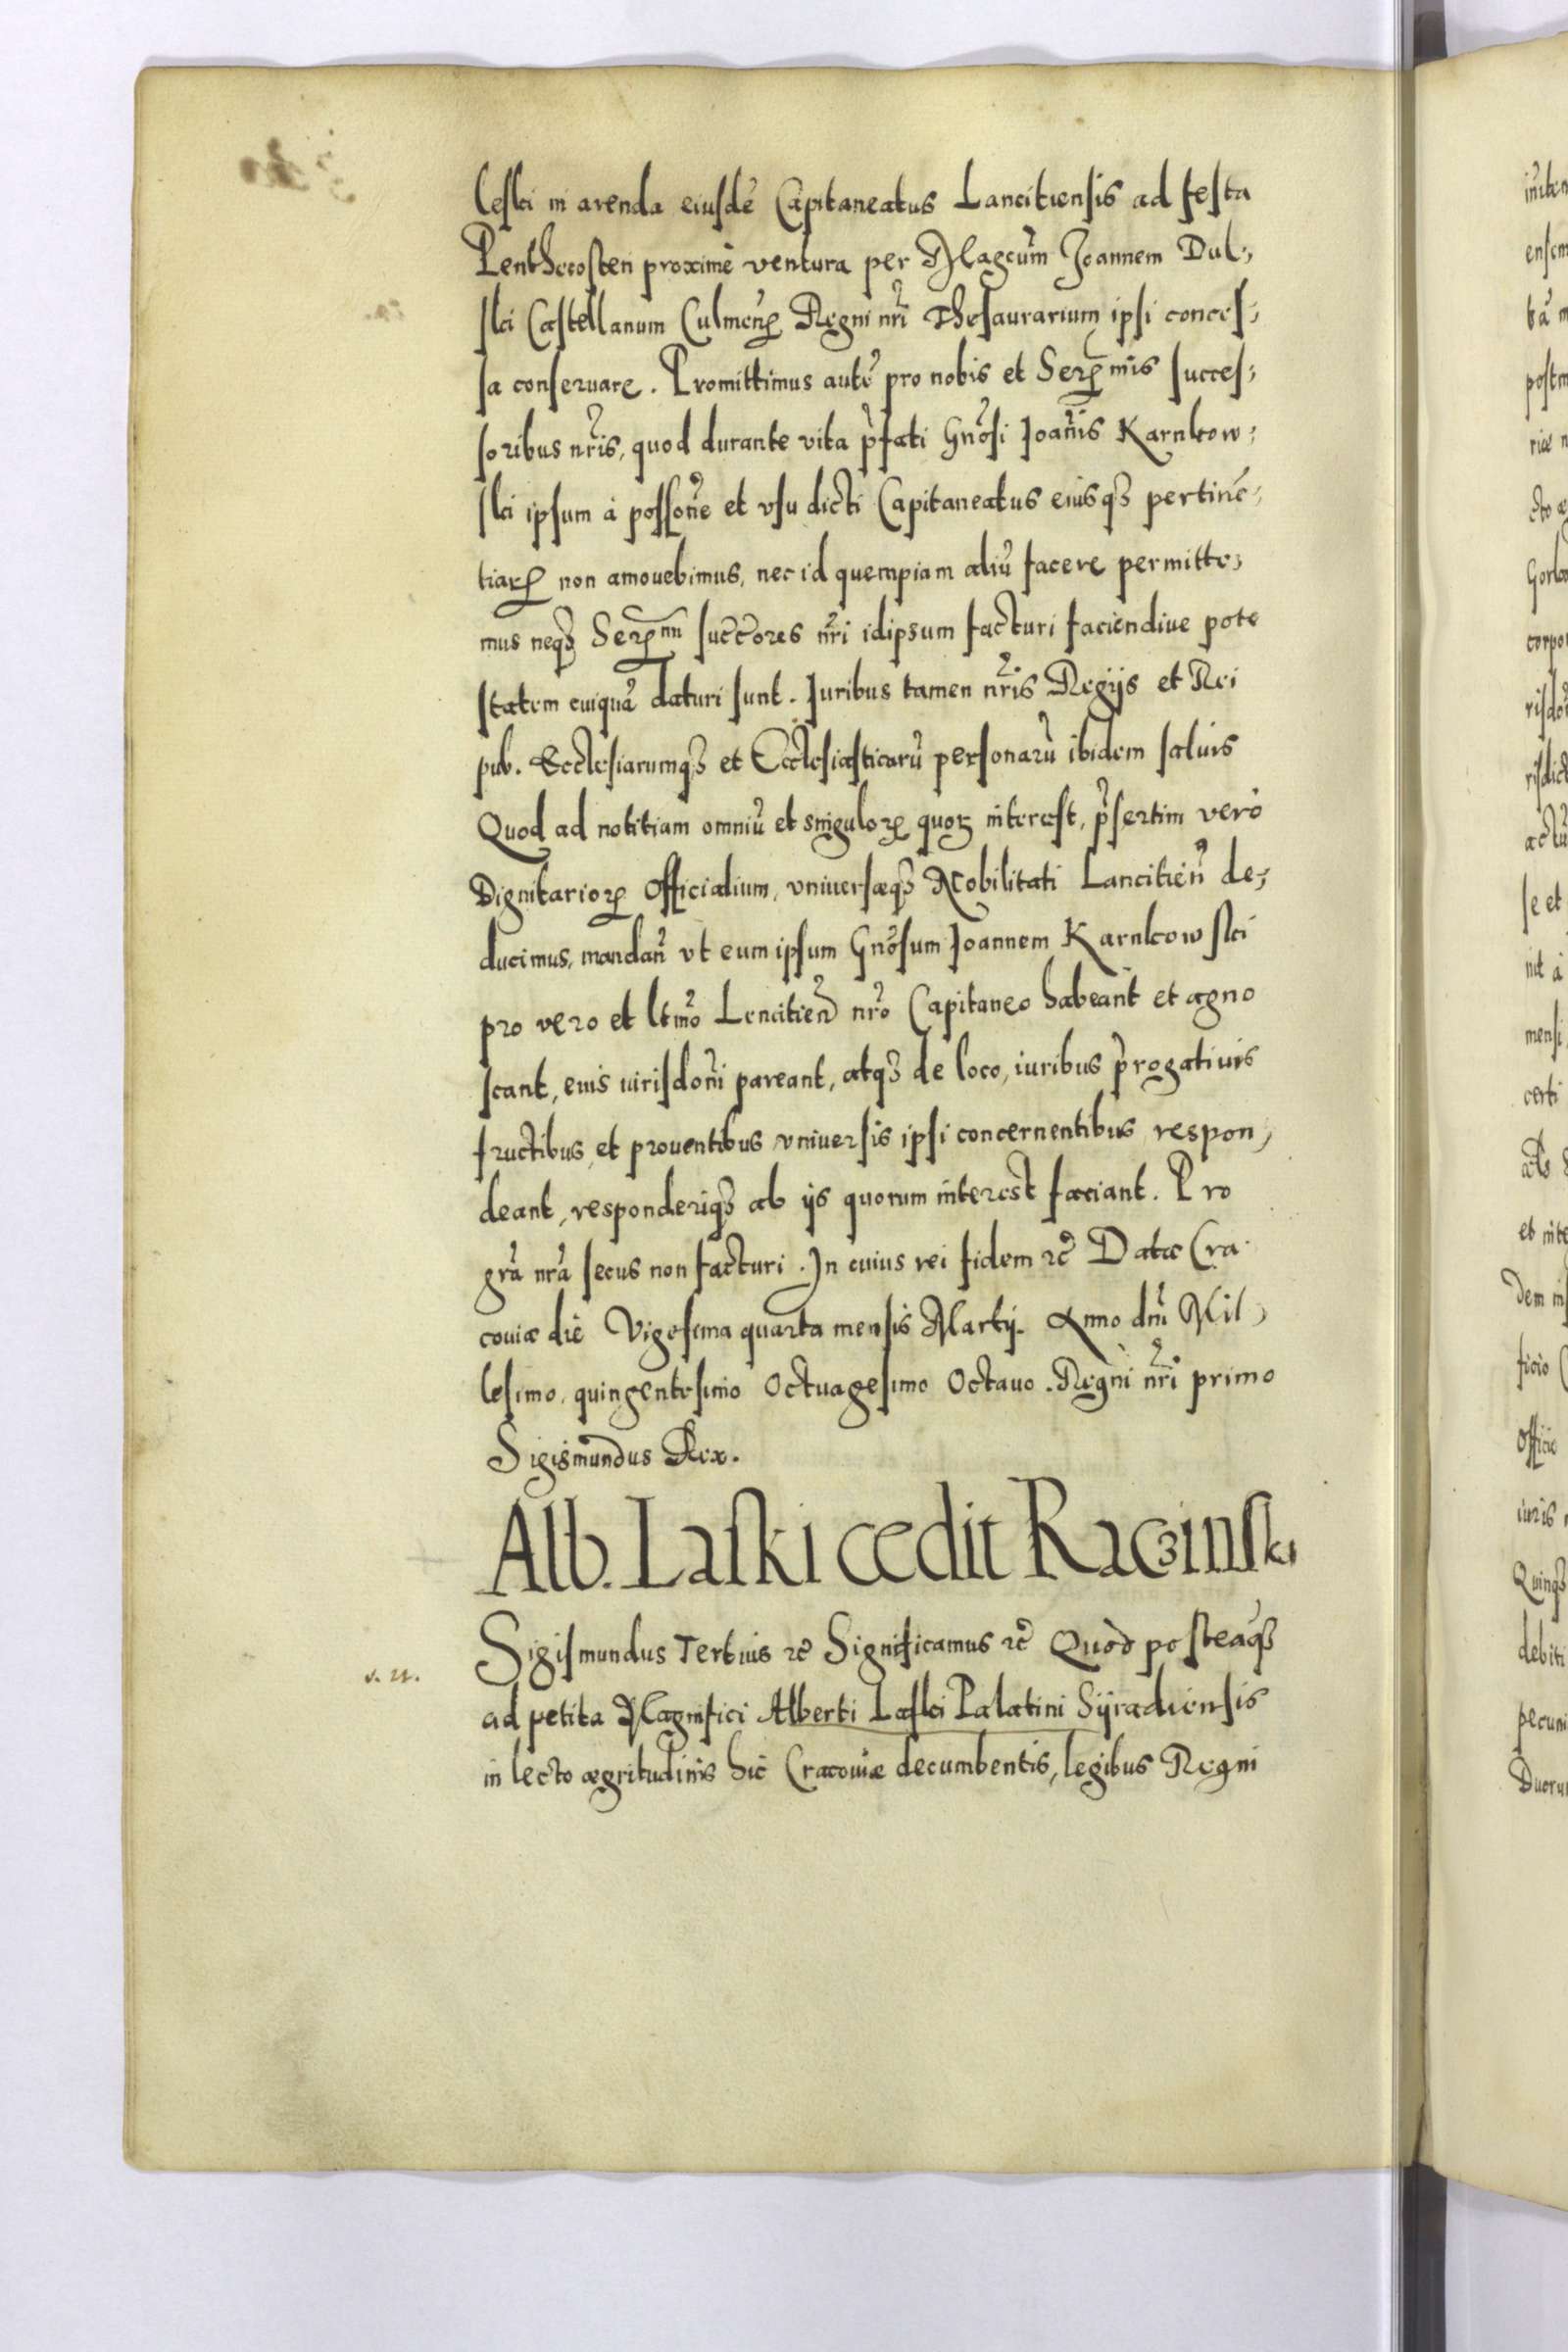 leski in arenda eiusdē Capitaneatus Lancitiensis ad festa
Penthecosten proximè ventura per Magcūm Joannem Dul-
ski Castellanum Culmeñ Regni nr̄i Thesaurarium ipsi conces-
sa conseruare. Promittimus autē pro nobis et Serꝫmis succes-
soribus nr̄is, quod durante vita p̄fati Gnōsi Joan̄is Karnkow-
ski ipsum à possōne et vsu dicti Capitaneatus eiusqꝫ pertinē-
tiarꝝ non amouebimus, nec id quempiam aliū facere permitte-
mus neqꝫ Serꝫmi succc̄ores nr̄i idipsum facturi faciendiue pote
statem cuiquā daturi sunt. Juribus tamen nr̄is Regijs et Rei
pub. Ecclesiarumqꝫ et Ecclesiasticarū personarū ibidem saluis
Quod ad notitiam omniū et singulorꝝ quorꝝ interest, p̄sertim verò
Dignitariorꝝ Officialium, vniuersæqꝫ Nobilitati Lancitieñ de-
ducimus, mandan̄ vt eum ipsum Gnōsum Joannem Karnkowski
pro vero et ltmō Lencitieñ nr̄o Capitaneo habeant et agno
scant, eius iurisdōni pareant, atqꝫ de loco, iuribus p̄rogatiuis
fructibus, et prouentibus vniuersis ipsi concernentibus respon-
deant, responderiqꝫ ab ijs quorum interest faciant. Pro
gr̄a nr̄a secus non facturi. In cuius rei fidem ꝛc̄ Datæ Cra-
couiæ die Vigesima quarta mensis Martij. Anno dn̄i Mil-
lesimo, quingentesimo Octuagesimo Octauo. Regni nr̄i primo
Sigismundus Rex.
Alb. Laski cedit Raczinski
Sigismundus Tertius ꝛc̄ Significamus ꝛc̄ Quòd posteaqꝫ
ad petita Magnifici Alberti Laski Palatini Syradiensis
in lecto ægritudinis hic Cracouiæ decumbentis, legibus Regni